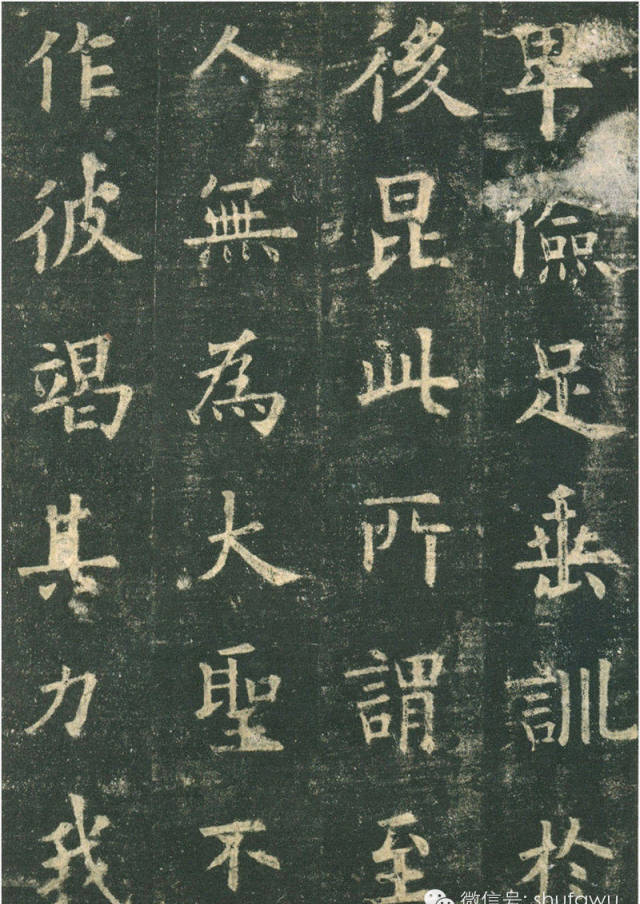 卑儉足垂訓於
後昆此所謂至
人無為大聖不
作彼竭其力我
微信号: shufawu